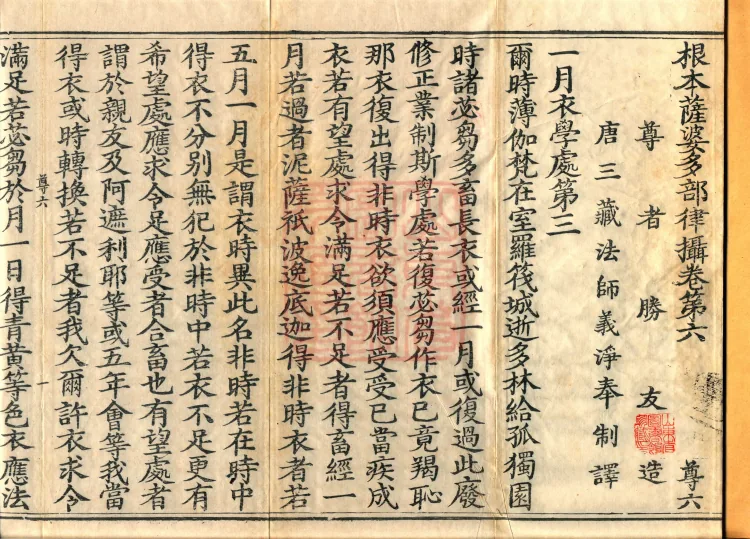 根本薩婆多部律攝卷第六 尊六
尊者勝友造
唐三藏法師義淨奉制譯
一月衣學處第三
爾時薄伽梵在室羅筏城逝多林給孤獨園
時諸苾芻多畜長衣或經一月或復過此廢
修正業制斯學處若復苾芻作衣已竟羯恥
那衣復出得非時衣欲須應受受已當疾成
衣若有望處求令滿足若不足者得畜經一
月若過者泥薩祇波逸底迦得非時衣者若
五月一月是謂衣時異此名非時若在時中
得衣不分別無犯於非時中若衣不足更有
希望處應求令足應受者合畜也有望處者
謂於親友及阿遮利耶等或五年會等我當
得衣或時轉換若不足者我欠爾許衣求令
尊六 一
滿足若苾芻於月一日得青黃等色衣應法